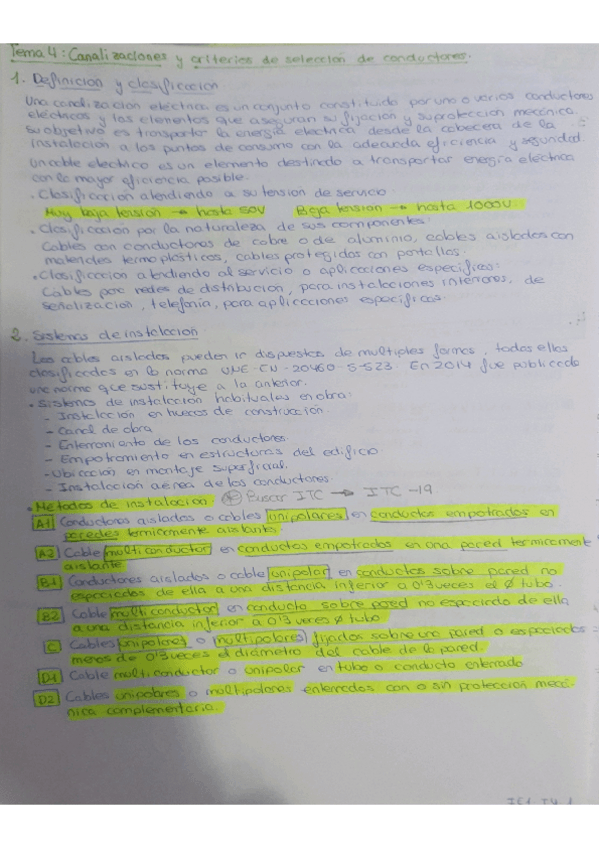 Tema 4: Canalizaciones y criterios de seleccion de conductores.
1. Definicion y clasificacion
Una canalizacion electrica es un conjunto constituida por uno o varios conductores
electricos y los elementos que aseguran su fijacion y su proteccion mecánica.
Su objetivo es transportar la energia electrica desde la cabecera de la
instalacion a los puntos de consumo con la adecuada eficiencia y seguridad.
Un cable electrico es un elemento destinado a transportar energia electrica
con la mayor eficiencia posible.
· Clasificacion atendiendo a su tension de servicio:
Muy baja tension → hasta 50V Baja tension → hasta 1000V.
· Clasificacion por la naturaleza de sus componentes:
Cables con conductores de cobre o de aluminio, cables aislados con
materiales termoplásticos, cables protegidos con pantallas.
· Clasificacion atendiendo al servicio o aplicaciones especificas:
Cables para redes de distribucion, para instalaciones interiores, de
señalización, telefonía, para aplicaciones especificas.
2. Sistemas de instalacion
Los cables aislados pueden ir dispuestos de multiples formas, todas ellas
clasificadas en la norma UNE-EN-20460-5-523. En 2014 fue publicada
una norma que sustituye a la anterior.
· Sistemas de instalación habituales en obra:
- Instalación en huecos de construccion.
- Canal de obra
- Enterramiento de los conductores.
- Empotramiento en estructuras del edificio
- Ubicación en montaje superficial.
- Instalacion aerea de los conductores.
· Metodos de instalacion: * Buscar ITC → ITC-19
A1 Conductores aislados o cables unipolares en conductos empotrados en
paredes termicamente aislante.
A2 Cable multiconductor en conductos empotrados en una pared termicamente
aislante
B1 Conductores aislados o cable unipolar en conductos sobre pared no
espaciados de ella a una distancia inferior a 0'3 veces el Ø tubo.
B2 Cable multiconductor en conducto sobre pared no espaciado de ella
a una distancia inferior a 0'3 veces Ø tubo
C Cables unipolares o multipolares fijados sobre una pared o espaciados
menos de 0'3 veces el diámetro del cable de la pared.
D1 Cable multiconductor o unipolar en tubo o conducto enterrado
D2 Cables unipolares o multipolares enterrados con o sin proteccion mecá-
nica complementaria.